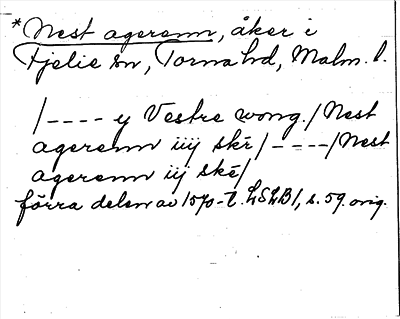 *Nest agerenn, åker i
Fjelie sn, Torna hd, Malm. l.
/---- y Vestre wong./Nest
agerenn iiij skr/----/Nest
agerenn iij ske/
förra delen av 1570-t. LSLB1, s. 59. orig.